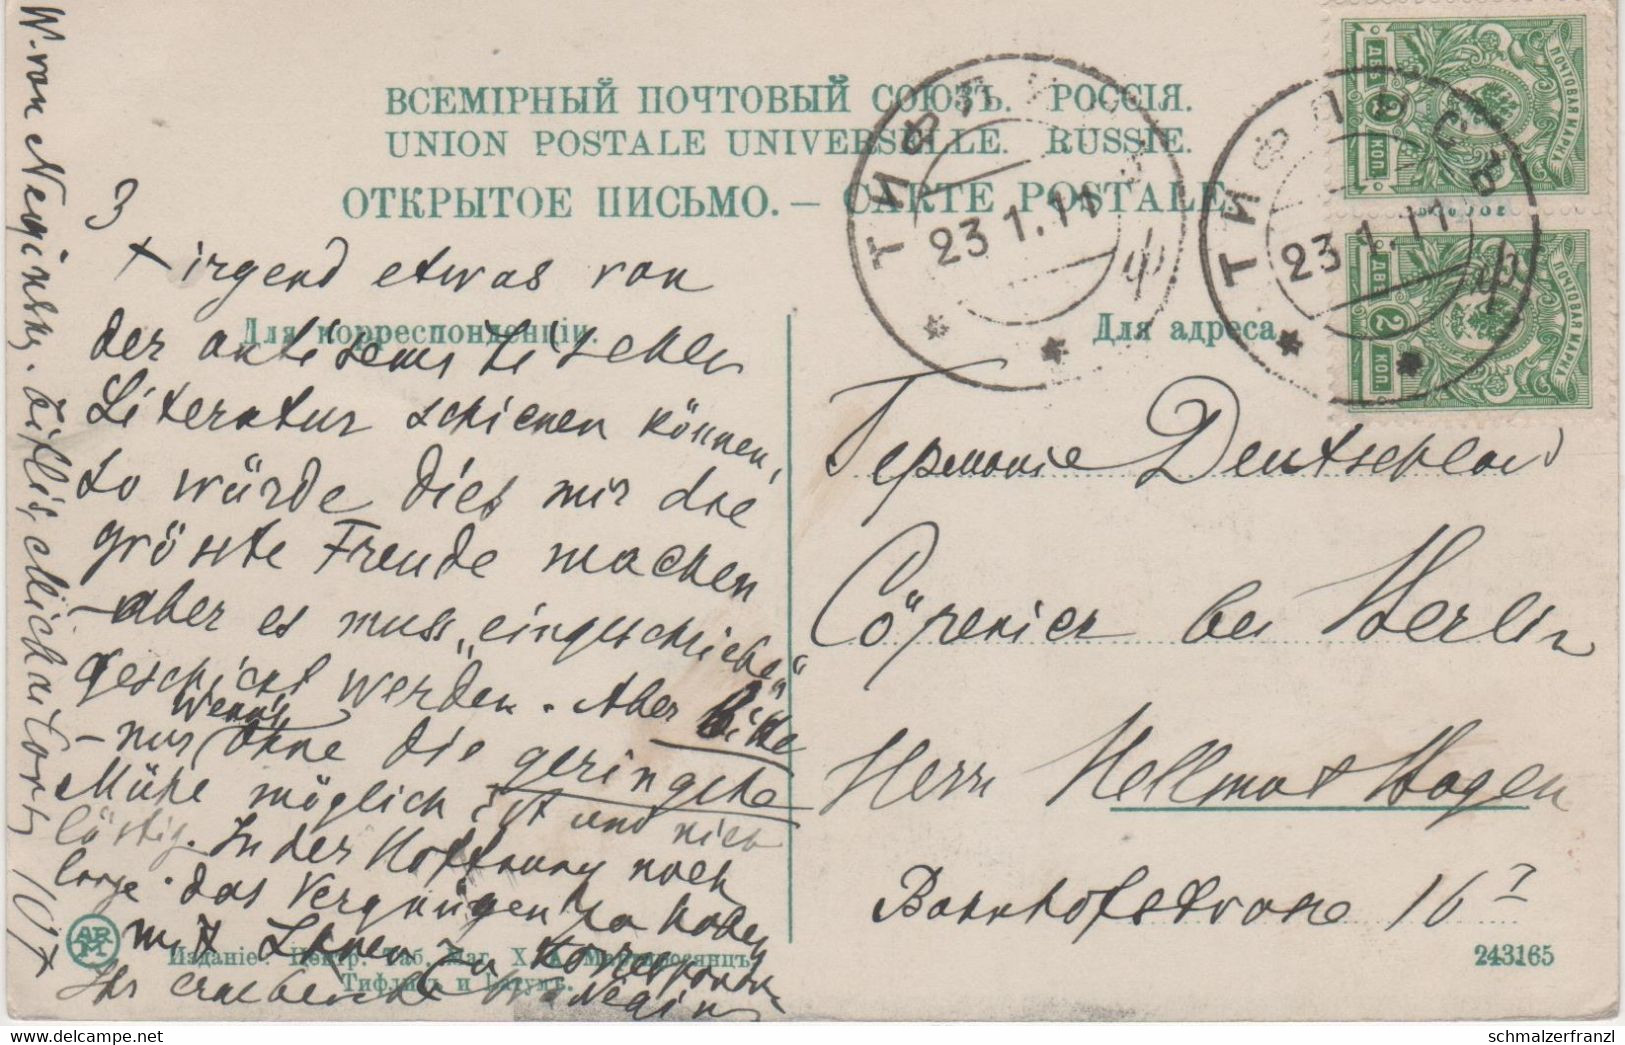 ВСЕМІРНЫЙ ПОЧТОВЫЙ СОЮЗЪ. РОССІЯ.
UNION POSTALE UNIVERSELLE. RUSSIE.
ОТКРЫТОЕ ПИСЬМО. — CARTE POSTALE.
ПОЧТОВАЯ МАРКА
ДВѢ 2 КОП.
ПОЧТОВАЯ МАРКА
ДВѢ 2 КОП.
ТИФЛИСЪ
23.1.11
ТИФЛИСЪ
23.1.11
Для корреспонденціи.
Для адреса
3
+ irgend etwas von
der antisemitischen
Literatur schicken können,
so würde dies mir die
grösste Freude machen
– aber es muss „eingeschrieben“
geschickt werden. Aber bitte
– nur wenn's ohne die geringste
Mühe möglich ist und nicht
lästig. In der Hoffnung noch
lange das Vergnügen zu haben
mit Ihnen zu korrespondi
Ihr ergebenster
W. von Neginsky. Tiflis, Michael 107
Германіе Deutschland
Cöpenick bei Berlin
Herrn Hellmut Hagen
Bahnhofstrasse 16 I
ARM
Изданіе: Центр. Таб. Маг. Х.
Тифлисъ и Батумъ.
243165
www.delcampe.net
schmalzerfranzl